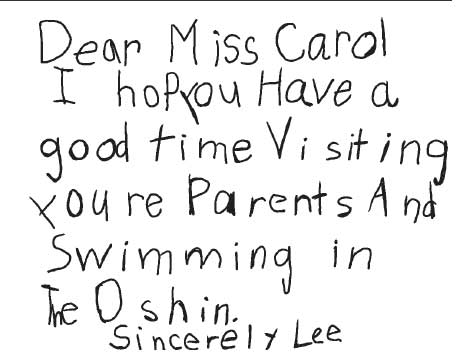 Dear Miss Carol
I hopyou Have a
good time Visiting
youre Parents And
Swimming in
The Oshin.
Sincerely Lee